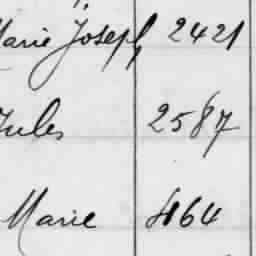 Marie Joseph 2421
Jules 2587
Marie 4164